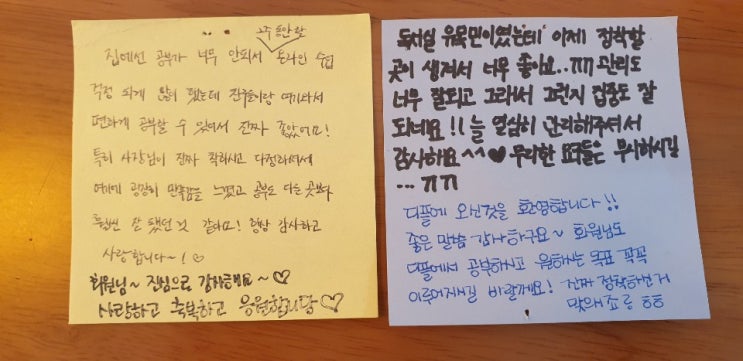 2주 동안 한
집에선 공부가 너무 안되서 온라인 수업
걱정 되게 많이 했는데 친구들이랑 여기와서
편하게 공부할 수 있어서 진짜 좋았어요!
특히 사장님이 진짜 착하시고 다정하셔서
여기에 굉장히 만족감을 느꼈고 공부도 다른 곳보다
훨씬 잘 됐던 것 같아요! 항상 감사하고
사랑합니다~! ♡
회원님~ 진심으로 감사해요~♡
사랑하고 축복하고 응원합니당♡
독서실 유목민이였는데 이제 정착할
곳이 생겨서 너무 좋아요..ㅠㅠ 관리도
너무 잘되고 그래서 그런지 집중도 잘
되네요!! 늘 열심히 관리해주셔서
감사해요^^♥ 무리한 요구들은 무시하시길
...ㅠㅠ
디플에 오신것을 환영합니다!!
좋은 말씀 감사하구요~ 회원님도
디플에서 공부하시고 원하는 목표 꼭꼭
이루어지시길 바랄께요! 진짜 정착하신거
맞으시죠? ㅎㅎ